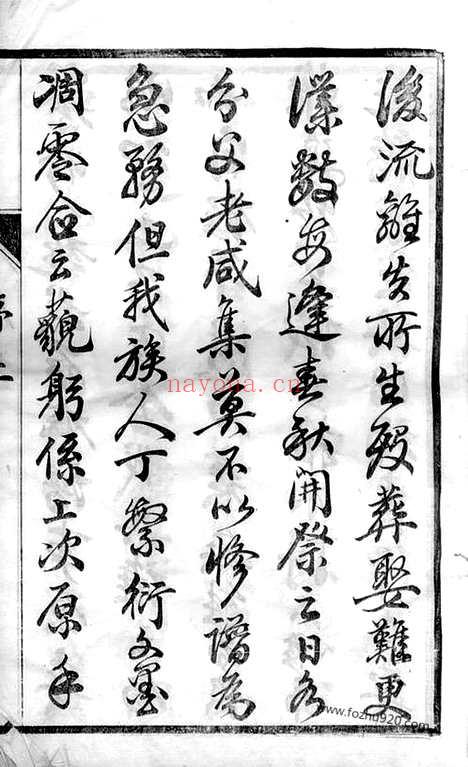 後流離失所生歿葬娶難更
僕數每逢春秋開祭之日各
分父老咸集莫不以修譜為
急務但我族人丁繁衍文墨
凋零合云藐躬係上次原手
nayona.cn
www.fozhu920.com